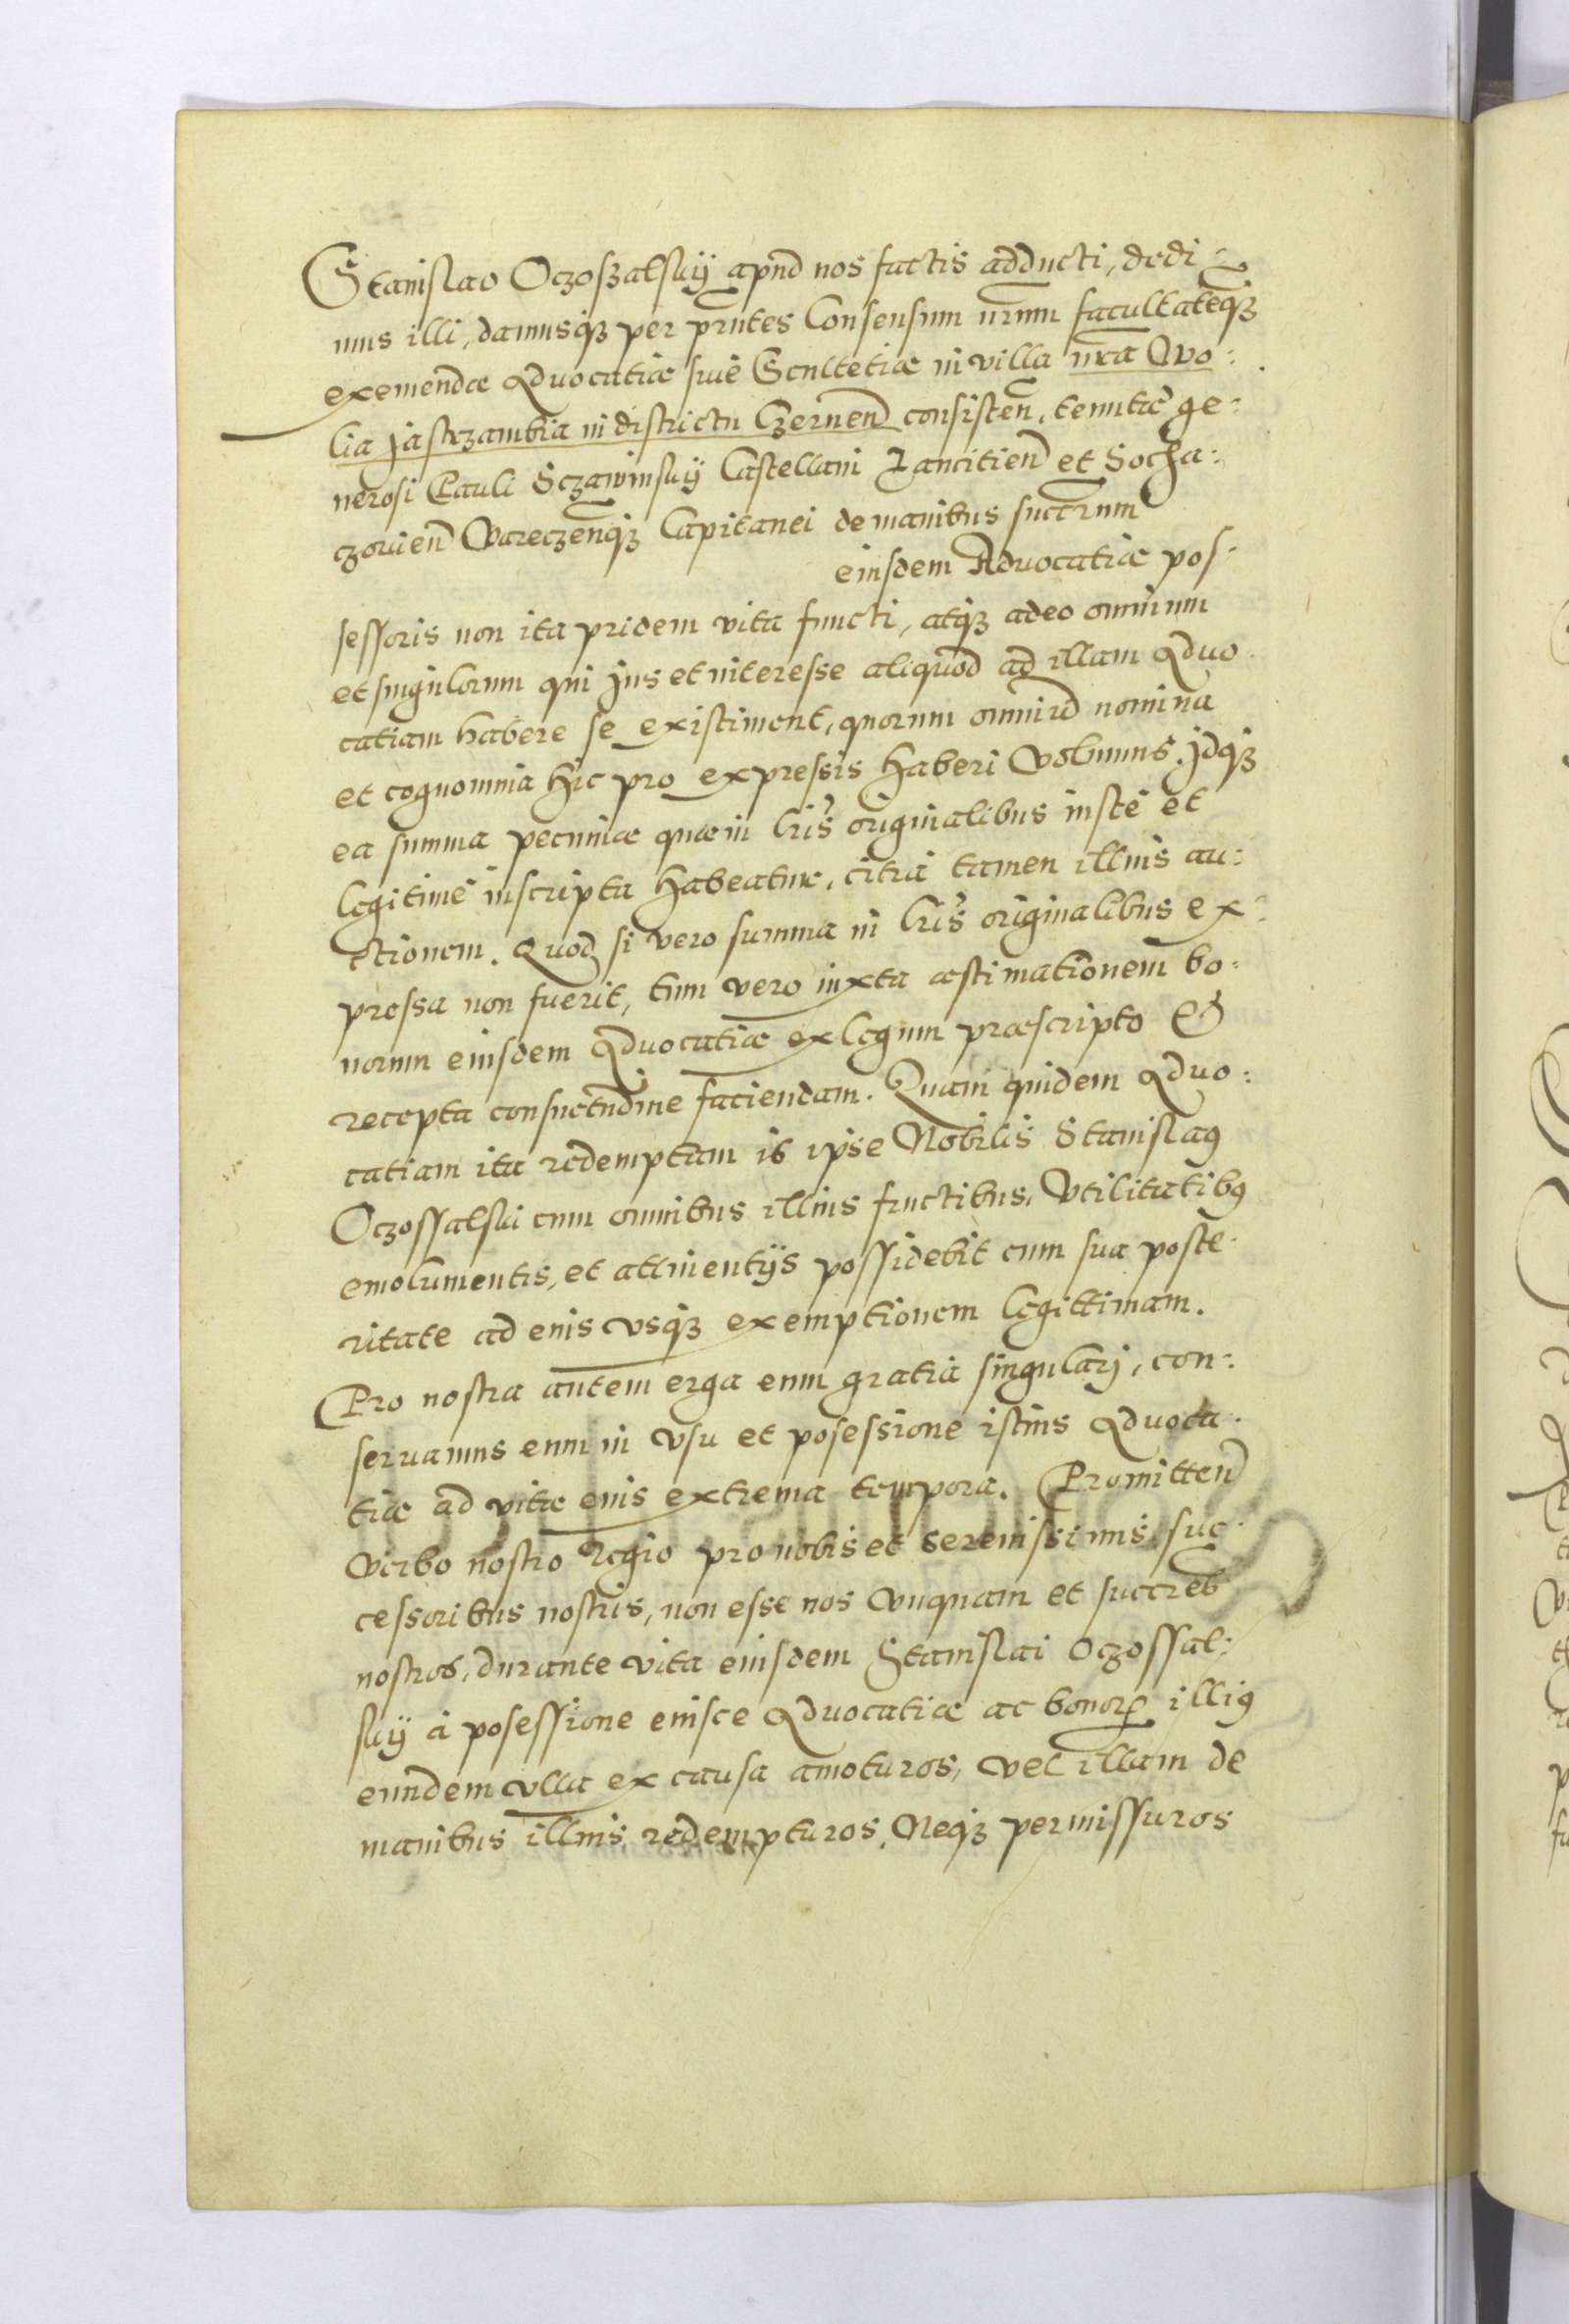 Stanislao Oczoszalskÿ apud nos factis adducti, dedi-
mus illi, damusqꝫ per prntes Consensum nrum facultateqꝫ
exemendæ Aduocatiæ siue Scultetiæ in villa nra Wo:
lia Jastrzambia in districtu Czernen consisten, tenutæ ge:
nerosi Pauli Sczawinskÿ Castellani Lancitien et Socha:
czouien Wareczenqꝫ Capitanei de manibus succrum
eiusdem Aduocatiæ pos-
sessoris non ita pridem vita functi, atqꝫ adeo omnium
et singulorum qui jus et interesse aliquod ad illam Aduo-
catiam habere se existiment, quorum omniũ nomina
et cognomina hic pro expressis haberi volumus. jdqꝫ
ea summa pecuniæ quæ in Lris originalibus iuste et
legitime inscripta habeatur, citra tamen illius au:
ctionem. Quod si vero summa in Lris originalibus ex-
pressa non fuerit, tum vero iuxta æstimationem bo-
norum eiusdem Aduocatiæ ex legum præscripto et
recepta consuetudine faciendam. Quam quidem Aduo:
catiam ita redemptam is ipse Nobilis Stanislaus
Oczossalski cum omnibus illius fructibus, Vtilitatibus
emolumentis, et attinentijs possidebit cum sua poste-
ritate ad eius vsqꝫ exemptionem legittimam.
Pro nostra autem erga eum gratia singulari, con-
seruamus eum in vsu et posessione istius Aduoca-
tiæ ad vitæ eius extrema tempora. Promitten
Verbo nostro Regio pro nobis et serenissimis suc-
cessoribus nostris, non esse nos vnquam et succreb
nostros, durante vita eiusdem Stanislai Oczossal-
skÿ à posessione eiusce Aduocatiæ ac bonorꝝ illius
eundem vlla ex causa amoturos, vel illam de
manibus illius redempturos, Neqꝫ permissuros